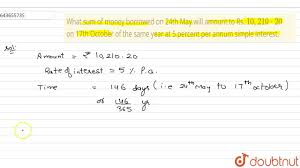 643655735
What sum of money borrowed on 24th May will amount to Rs. 10, 210 - 20
on 17th October of the same year at 5 percent per annum simple interest.
Solⁿ:
Amount = ₹ 10,210.20
Rate of interest = 5 % P.a.
Time = 146 days (i.e. 24th may to 17th october)
or 146/365 yr.
doubtnut